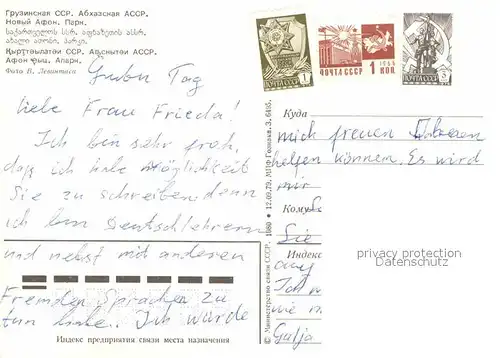 Грузинская ССР. Абхазская АССР.
Новый Афон. Парк.
საქართველოს სსრ. აფხაზეთის ასსრ.
ახალი ათონი. პარკი.
Қырҭтәылатәи ССР. Аԥснытәи АССР.
Афон Ҿыц. Апарк.
Фото В. Левитаса
Guten Tag
liebe Frau Frieda!
Ich bin sehr froh,
daß ich habe Möglichkeit
Sie zu schreiben denn
ich bin Deutschlehrerin
und nebst mit anderen
Fremden Sprachen zu
tun habe. Ich würde
Индекс предприятия связи места назначения
© Министерство связи СССР. 1980
ПОЧТА СССР 1 КОП
Куда
mich freuen Ihnen
helfen können. Es wird
mir
Кому
Sie
privacy protection
Datenschutz
Индекс
auf
Ich
me
Gulja